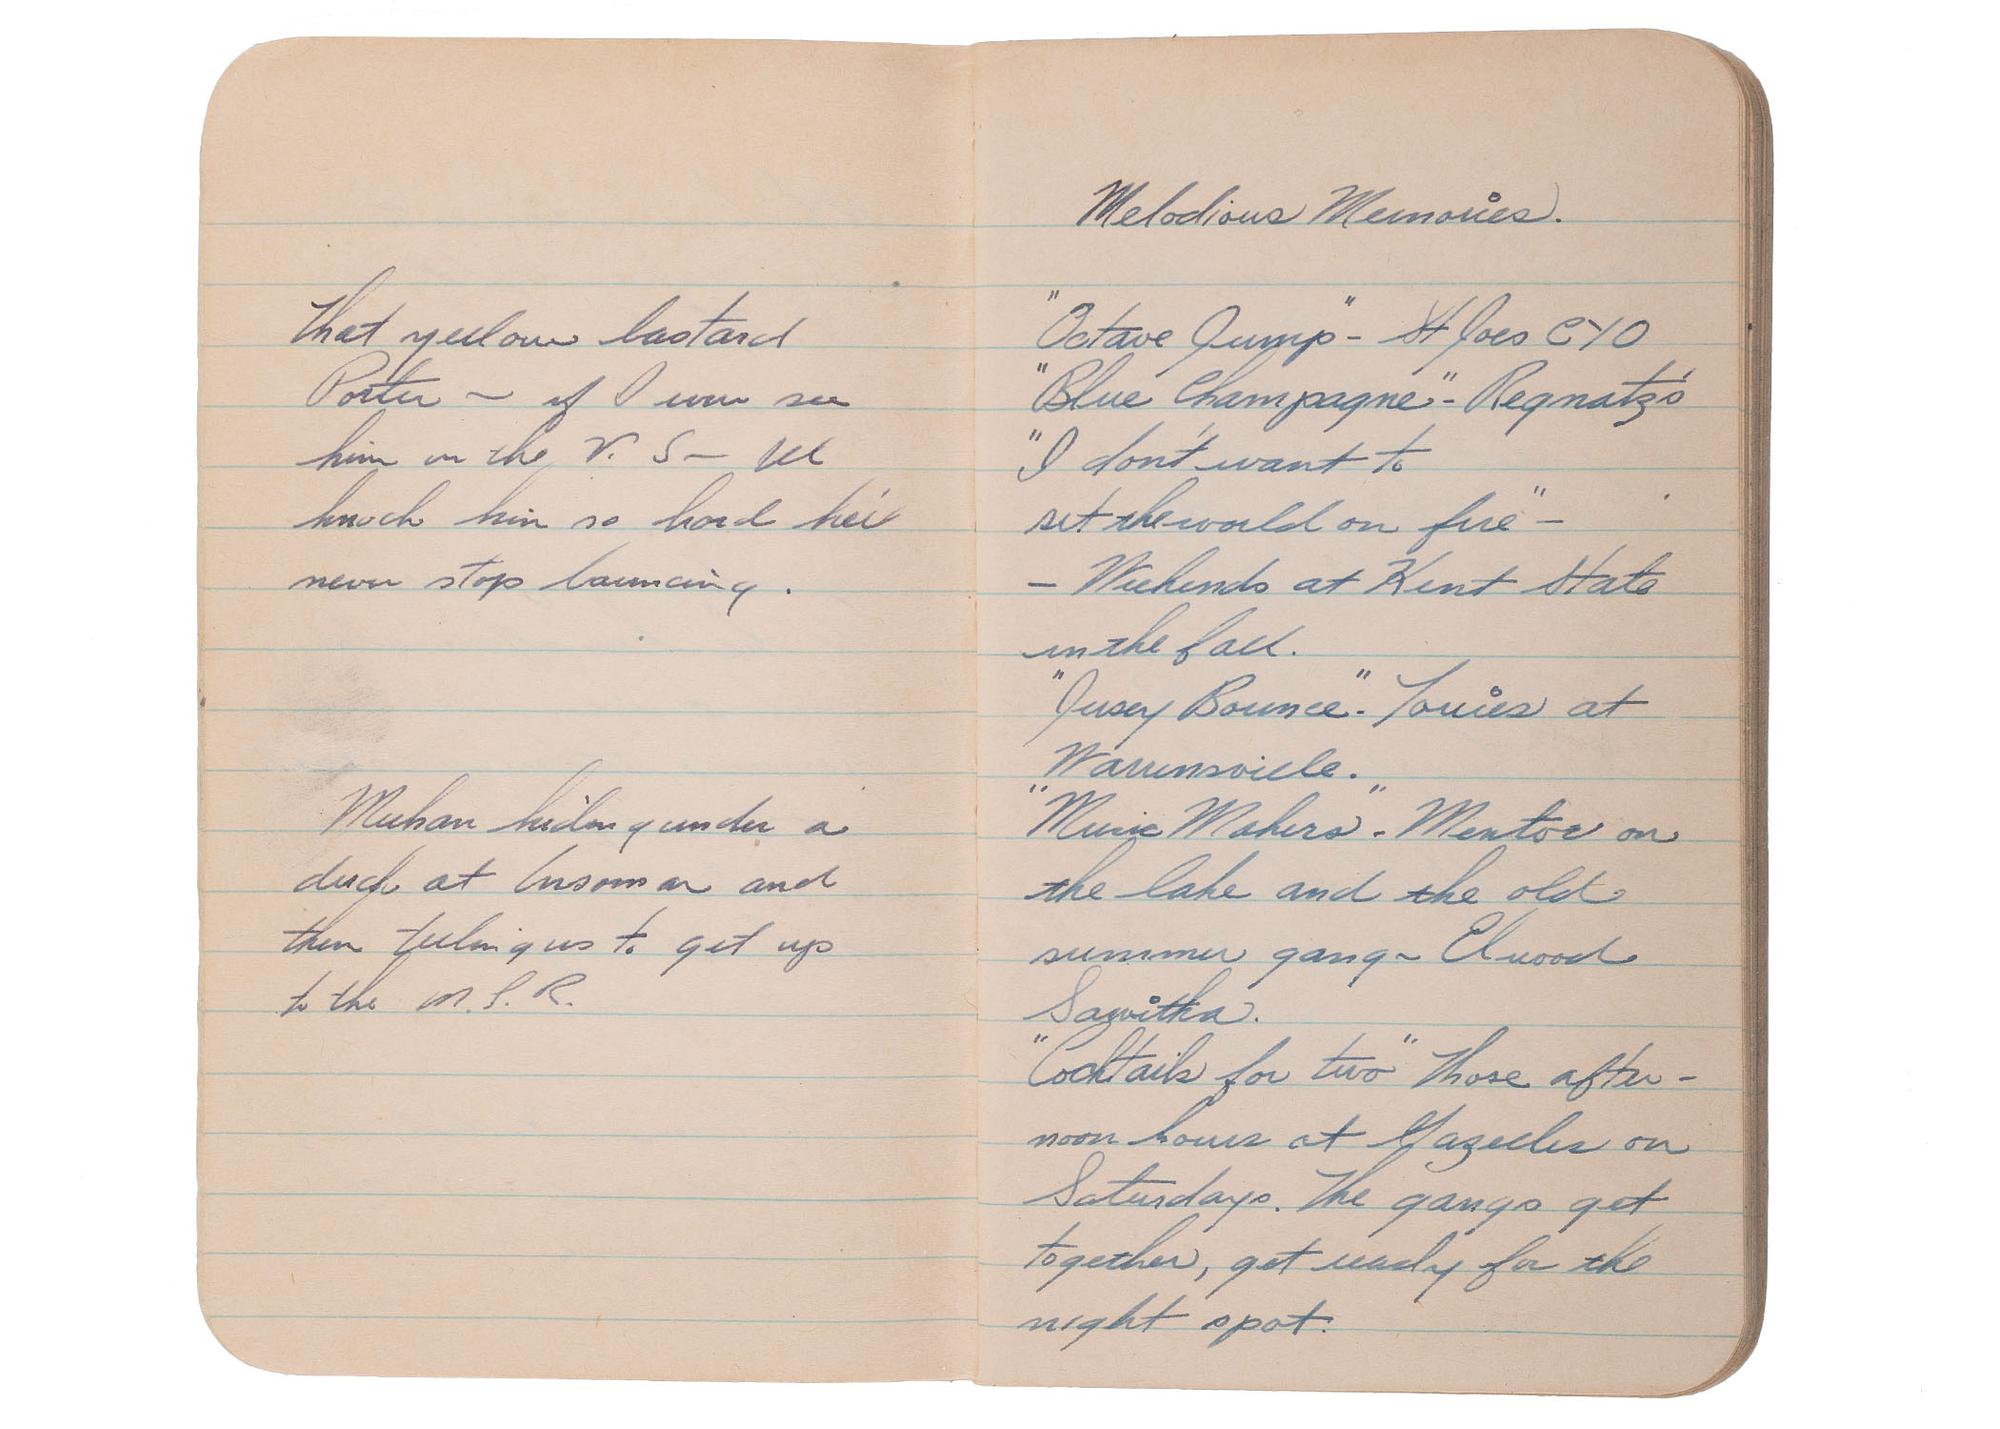 that yellow bastard
Porter - if I ever see
him in the V. S - I'll
knock him so hard he'll
never stop bouncing.
Meehan hiding under a
duck at and
then telling us to get up
to the M.S.R.
Melodious Memories.
"Octave Jump" - St Joes CYO
"Blue Champagne" - Regnatz's
"I don't want to
set the world on fire" -
- Weekends at Kent State
in the fall.
"Jersey Bounce" - Torries at
Warrensville.
"Music Makers" - Mentor on
the lake and the old
summer gang - Elwood
Sawitka.
"Cocktails for two" Those after-
noon hours at Gazelles on
Saturdays. The gangs get
together, get ready for the
night spot.